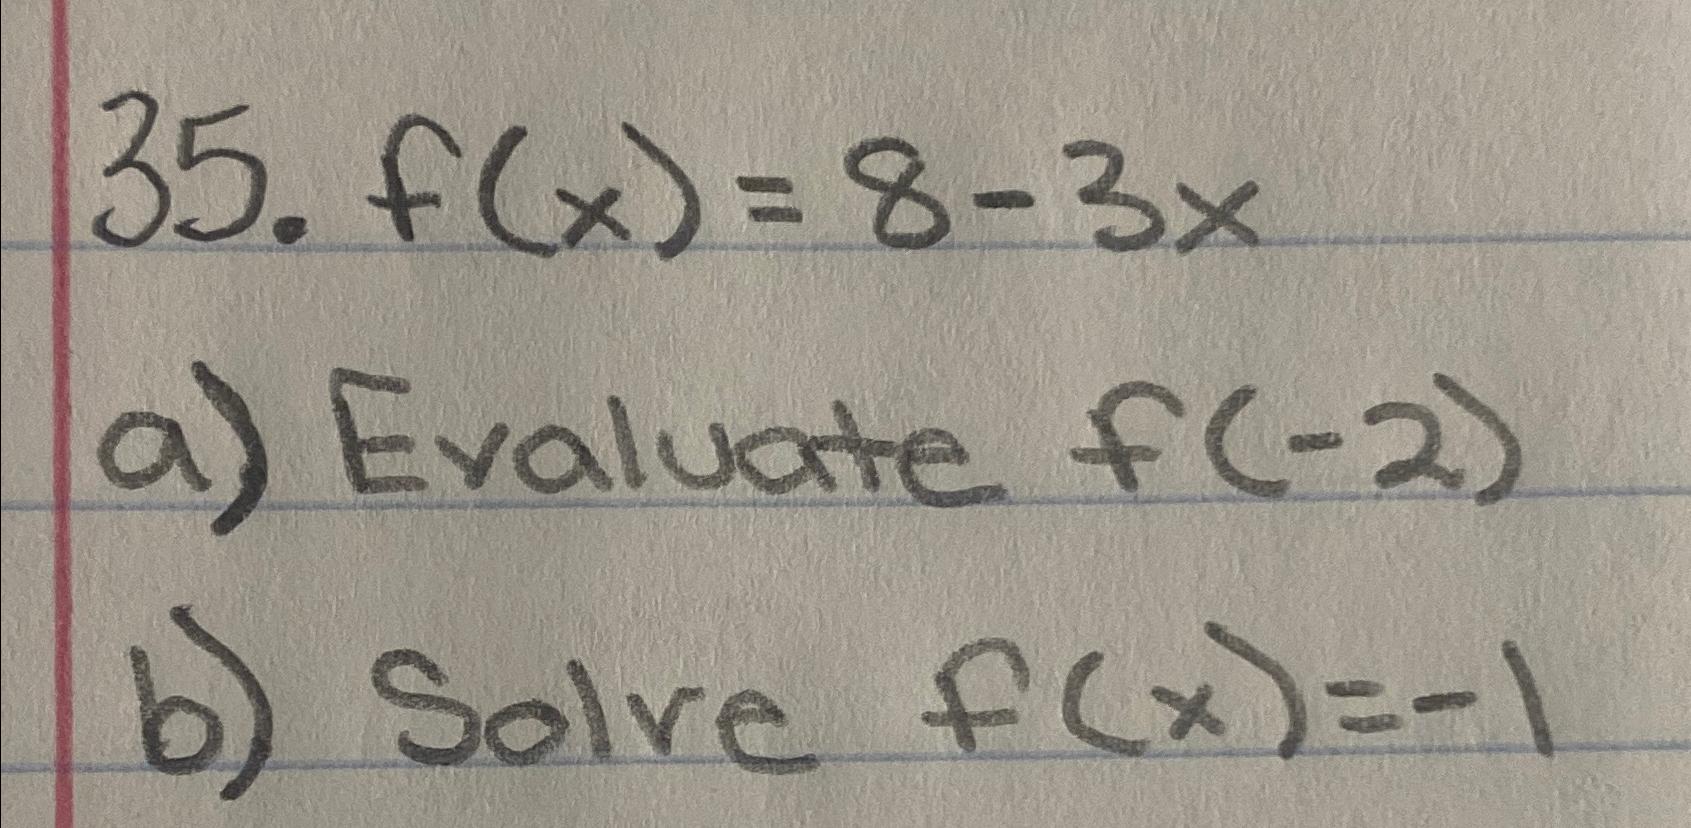 35. f(x) = 8 - 3x
a) Evaluate f(-2)
b) Solve f(x) = -1